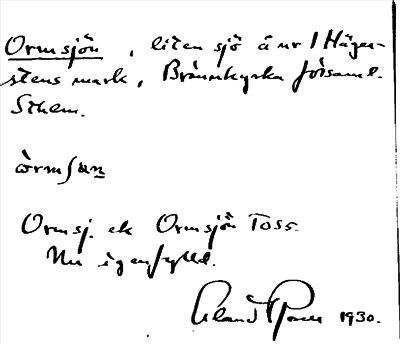 Ormsjön, liten sjö å nr 1 Häger-
stens mark, Brännkyrka församl.
Sthlm.
òrmʃɯn
Ormsj. ek Ormsjön Toss.
Nu igenfylld.
1930.